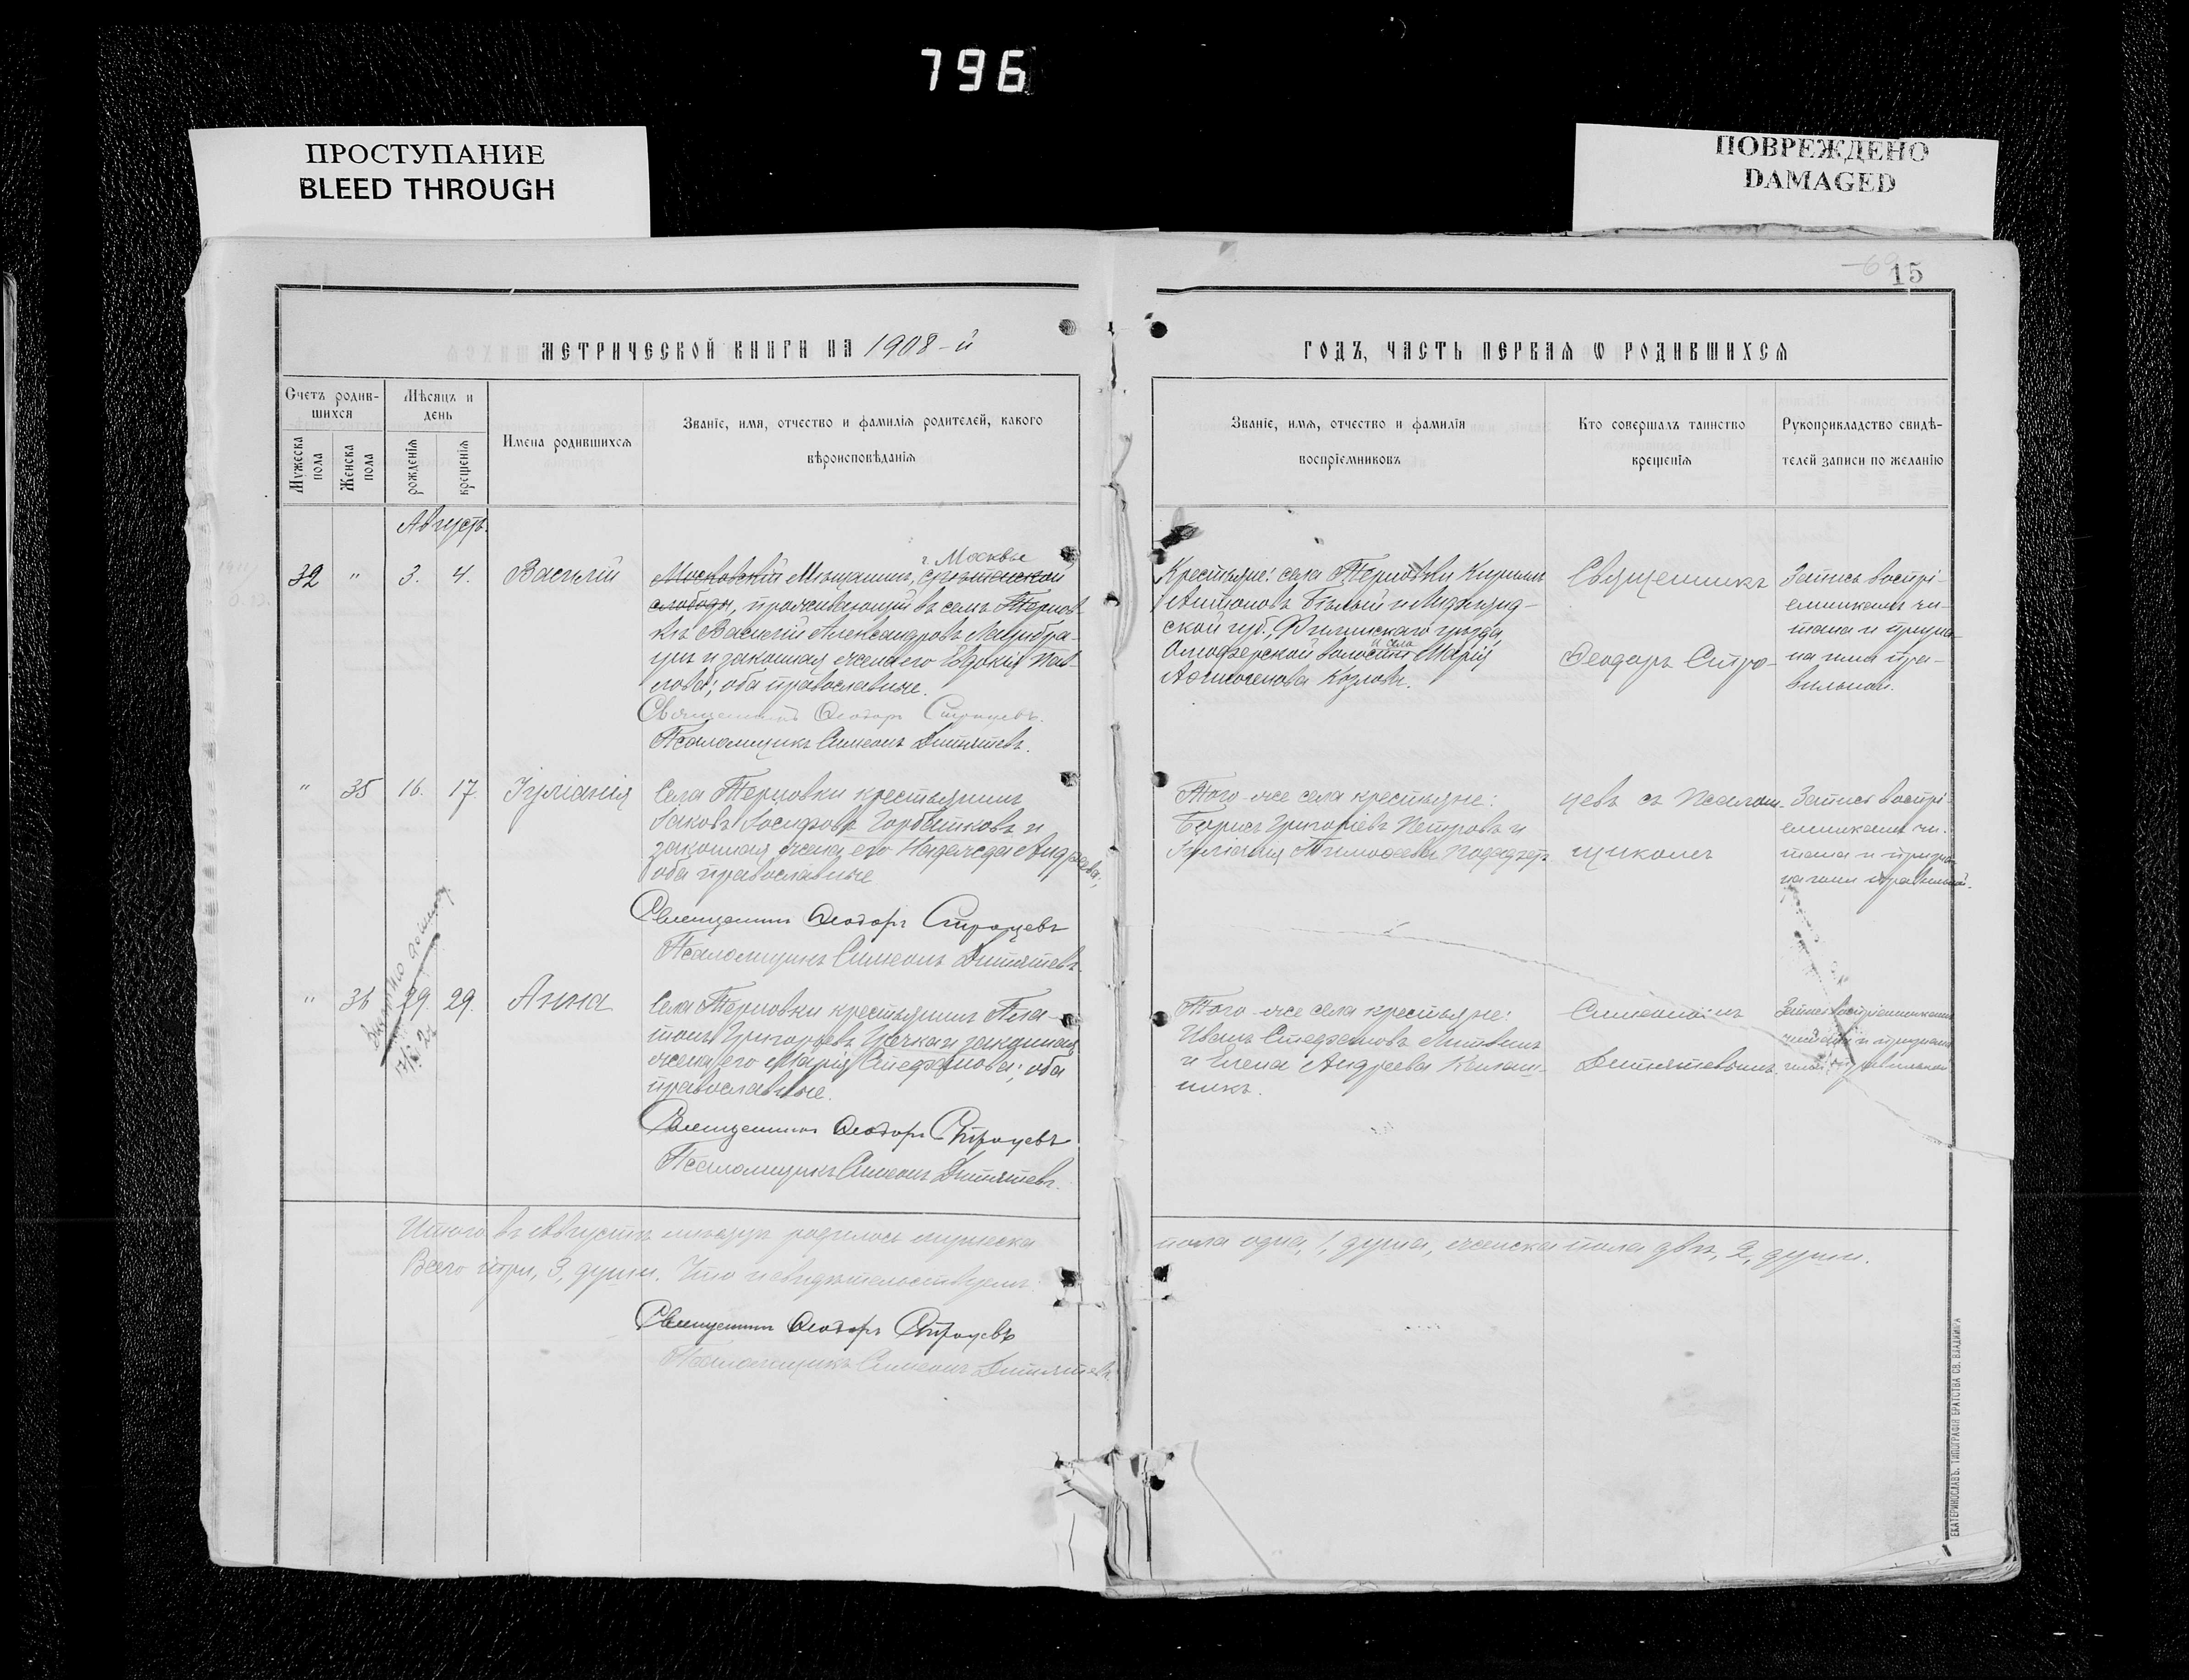 796
ПРОСТУПАНИЕ
BLEED THROUGH
ПОВРЕЖДЕНО
DAMAGED
15
МЕТРИЧЕСКОЙ КНИГИ НА 1908-й
ГОДЪ, ЧАСТЬ ПЕРВАЯ Ѡ РОДИВШИХСЯ
Счетъ родив-
шихся
Мужеска
пола
Женска
пола
Мѣсяцъ и
день
рожденія
крещенія
Имена родившихся
Званіе, имя, отчество и фамилія родителей, какого
вѣроисповѣданія
Званіе, имя, отчество и фамилія
воспріемниковъ
Кто совершалъ таинство
крещенія
Рукоприкладство свидѣ-
телей записи по желанію
Августъ.
32 " 3. 4. Василій
г. Москвы
Московскій Мѣщанинъ,
слободы, проживающій въ селѣ Тернов-
кѣ Василій Александровъ
и законная жена его Евдокія Пав-
лова; оба православные.
Священникъ Ѳеодоръ Строцевъ.
Псаломщикъ Симеонъ Дитятевъ.
Крестьяне: села Терновки Кириллъ
Антоновъ Бѣлый и
ской губ., уѣзда,
волости и села Марія
Козлова.
Священникъ
Ѳеодоръ Стро-
Запись воспрі-
емникамъ чи-
тана и призна-
на ими пра-
вильной.
" 35 16. 17 Іуліанія
Села Терновки крестьянинъ
Іаковъ Іосифовъ Горбатковъ и
законная жена его Надежда Андреева;
оба православные
Священникъ Ѳеодоръ Строцевъ
Псаломщикъ Симеонъ Дитятевъ.
Того-же села крестьяне:
Борисъ Григоріевъ Петровъ и
Іуліанія Тимоѳеева
цевъ съ псалом-
щикомъ
Запись воспрі-
емникамъ чи-
тана и призна-
на ими правильной.
" 36 29. 29. Анна
Села Терновки крестьянинъ Пла-
тонъ Григорьевъ и законная
жена его Марія Стефанова; оба
православные.
Священникъ Ѳеодоръ Строцевъ
Псаломщикъ Симеонъ Дитятевъ.
Того-же села крестьяне:
Иванъ Стефановъ Литвинъ
и Елена Андреева
никъ.
Симеономъ
Дитятевымъ.
Запись воспріемникамъ
читана и признана
ими правильной
Итого въ Августѣ мѣсяцѣ родилось мужеска
пола одна, 1, душа, женска пола двѣ, 2, души.
Всего три, 3, души. Что и свидѣтельствуемъ:
Священникъ Ѳеодоръ Строцевъ
Псаломщикъ Симеонъ Дитятевъ.
ЕКАТЕРИНОСЛАВЪ. ТИПОГРАФІЯ БРАТСТВА СВ. ВЛАДИМІРА